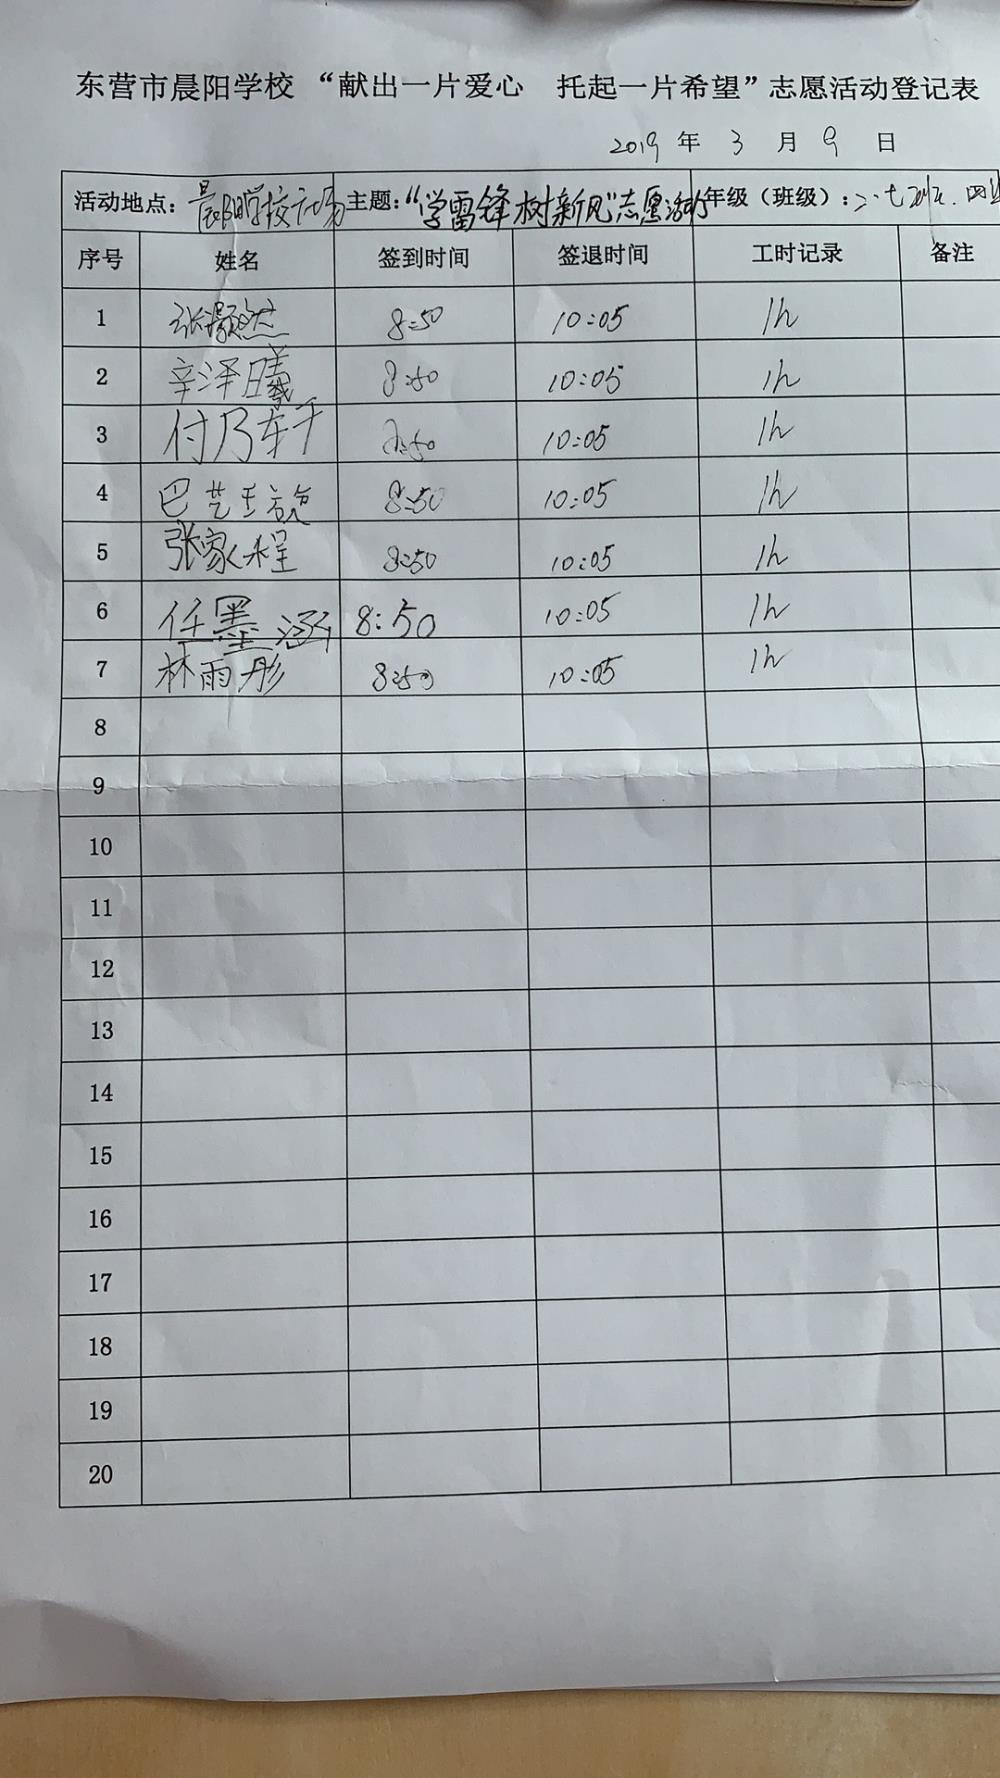 东营市晨阳学校 “献出一片爱心 托起一片希望”志愿活动登记表
2019 年 3 月 9 日
活动地点：晨阳学校 主题：“学雷锋树新风”志愿活动 年级（班级）：二.七
序号 姓名 签到时间 签退时间 工时记录 备注
1 张灏然 8:50 10:05 1h
2 辛泽曦 8:50 10:05 1h
3 付乃轩 8:50 10:05 1h
4 巴艺 8:50 10:05 1h
5 张家程 8:50 10:05 1h
6 任墨涵 8:50 10:05 1h
7 林雨彤 8:50 10:05 1h
8
9
10
11
12
13
14
15
16
17
18
19
20